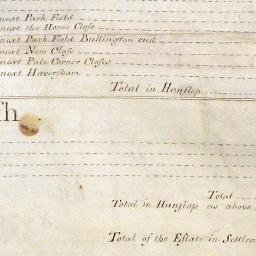 next Park Field
next the Home Close
next Park Field Bullington end
next New Close
next Pale Corner Closes
next Haversham
Total in Hanslop
Total
Total in Hanslop as above
Total of the Estate in Settlem